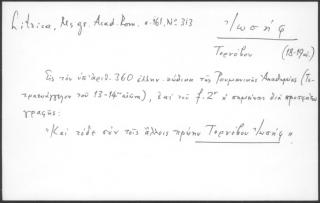 Litzica, Ms. gr. Acad. Rom. σ. 161, Nº 313
Ἰωσήφ
Τορνόβου (18-19 αἰ.)
Εἰς τὸν ὑπ' ἀριθ. 360 ἑλλην. κώδικα τῆς Ρουμανικῆς Ἀκαδημίας (Τε-
τραευάγγελον τοῦ 13-14ου αἰῶνος), ἐπὶ τοῦ f. 2r ὁ σημειώσας διὰ
γραφῆς:
"Καὶ τόδε σὺν τοῖς ἄλλοις πρώην Τορνόβου Ἰωσήφ".